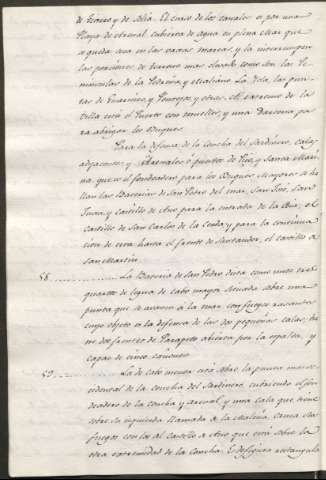 de Heras y de Solia. El curso de los canales es por una
Playa de Arenal cubierta de agua en plena Mar que
queda en las varas mareas, y la interrumpen
las porciones de terreno mas elevado como son las Pe-
ninsulas de la Pedreña, y Maliaño La Isla, las pun-
tas de y Pontejos y otras. Al extremo de la
villa está el Puerto con muelles, y una Darsena pa-
ra abrigar los Buques.
Para la defensa de la concha del Sardinero, calas
adyacentes, y Arenales ó puntos de Puo, y Santa Mari-
na, que es el fondeadero para los Buques Mayores se ha-
llan las Baterías de San Pedro del mar, San José, San
Juan, y castillo de Ano para la entrada de la Ria; el
castillo de San Carlos de la Cerda y para la continua-
cion de esta hasta el frente de Santander, el castillo de
San Martin.
58. La Batería de San Pedro dista como unos tres
quartos de legua de cabo mayor situada sobre una
punta que se avanza á la mar con fuegos rasantes
cuyo objeto es la defensa de las dos pequeñas calas, tie-
ne dos frentes de Parapeto abierta por la espalda, y
capaz de cinco cañones.
59. La de cabo menor está sobre la punta occi-
dental de la concha del Sardinero, cubriendo el fon-
deadero de la concha y Arenal, y una cala que tiene
sobre la izquierda llamada á la Maluña, cruza sus
fuegos con los del castillo de Ano que está sobre la
otra extremidad de la concha. Es de figura rectangula